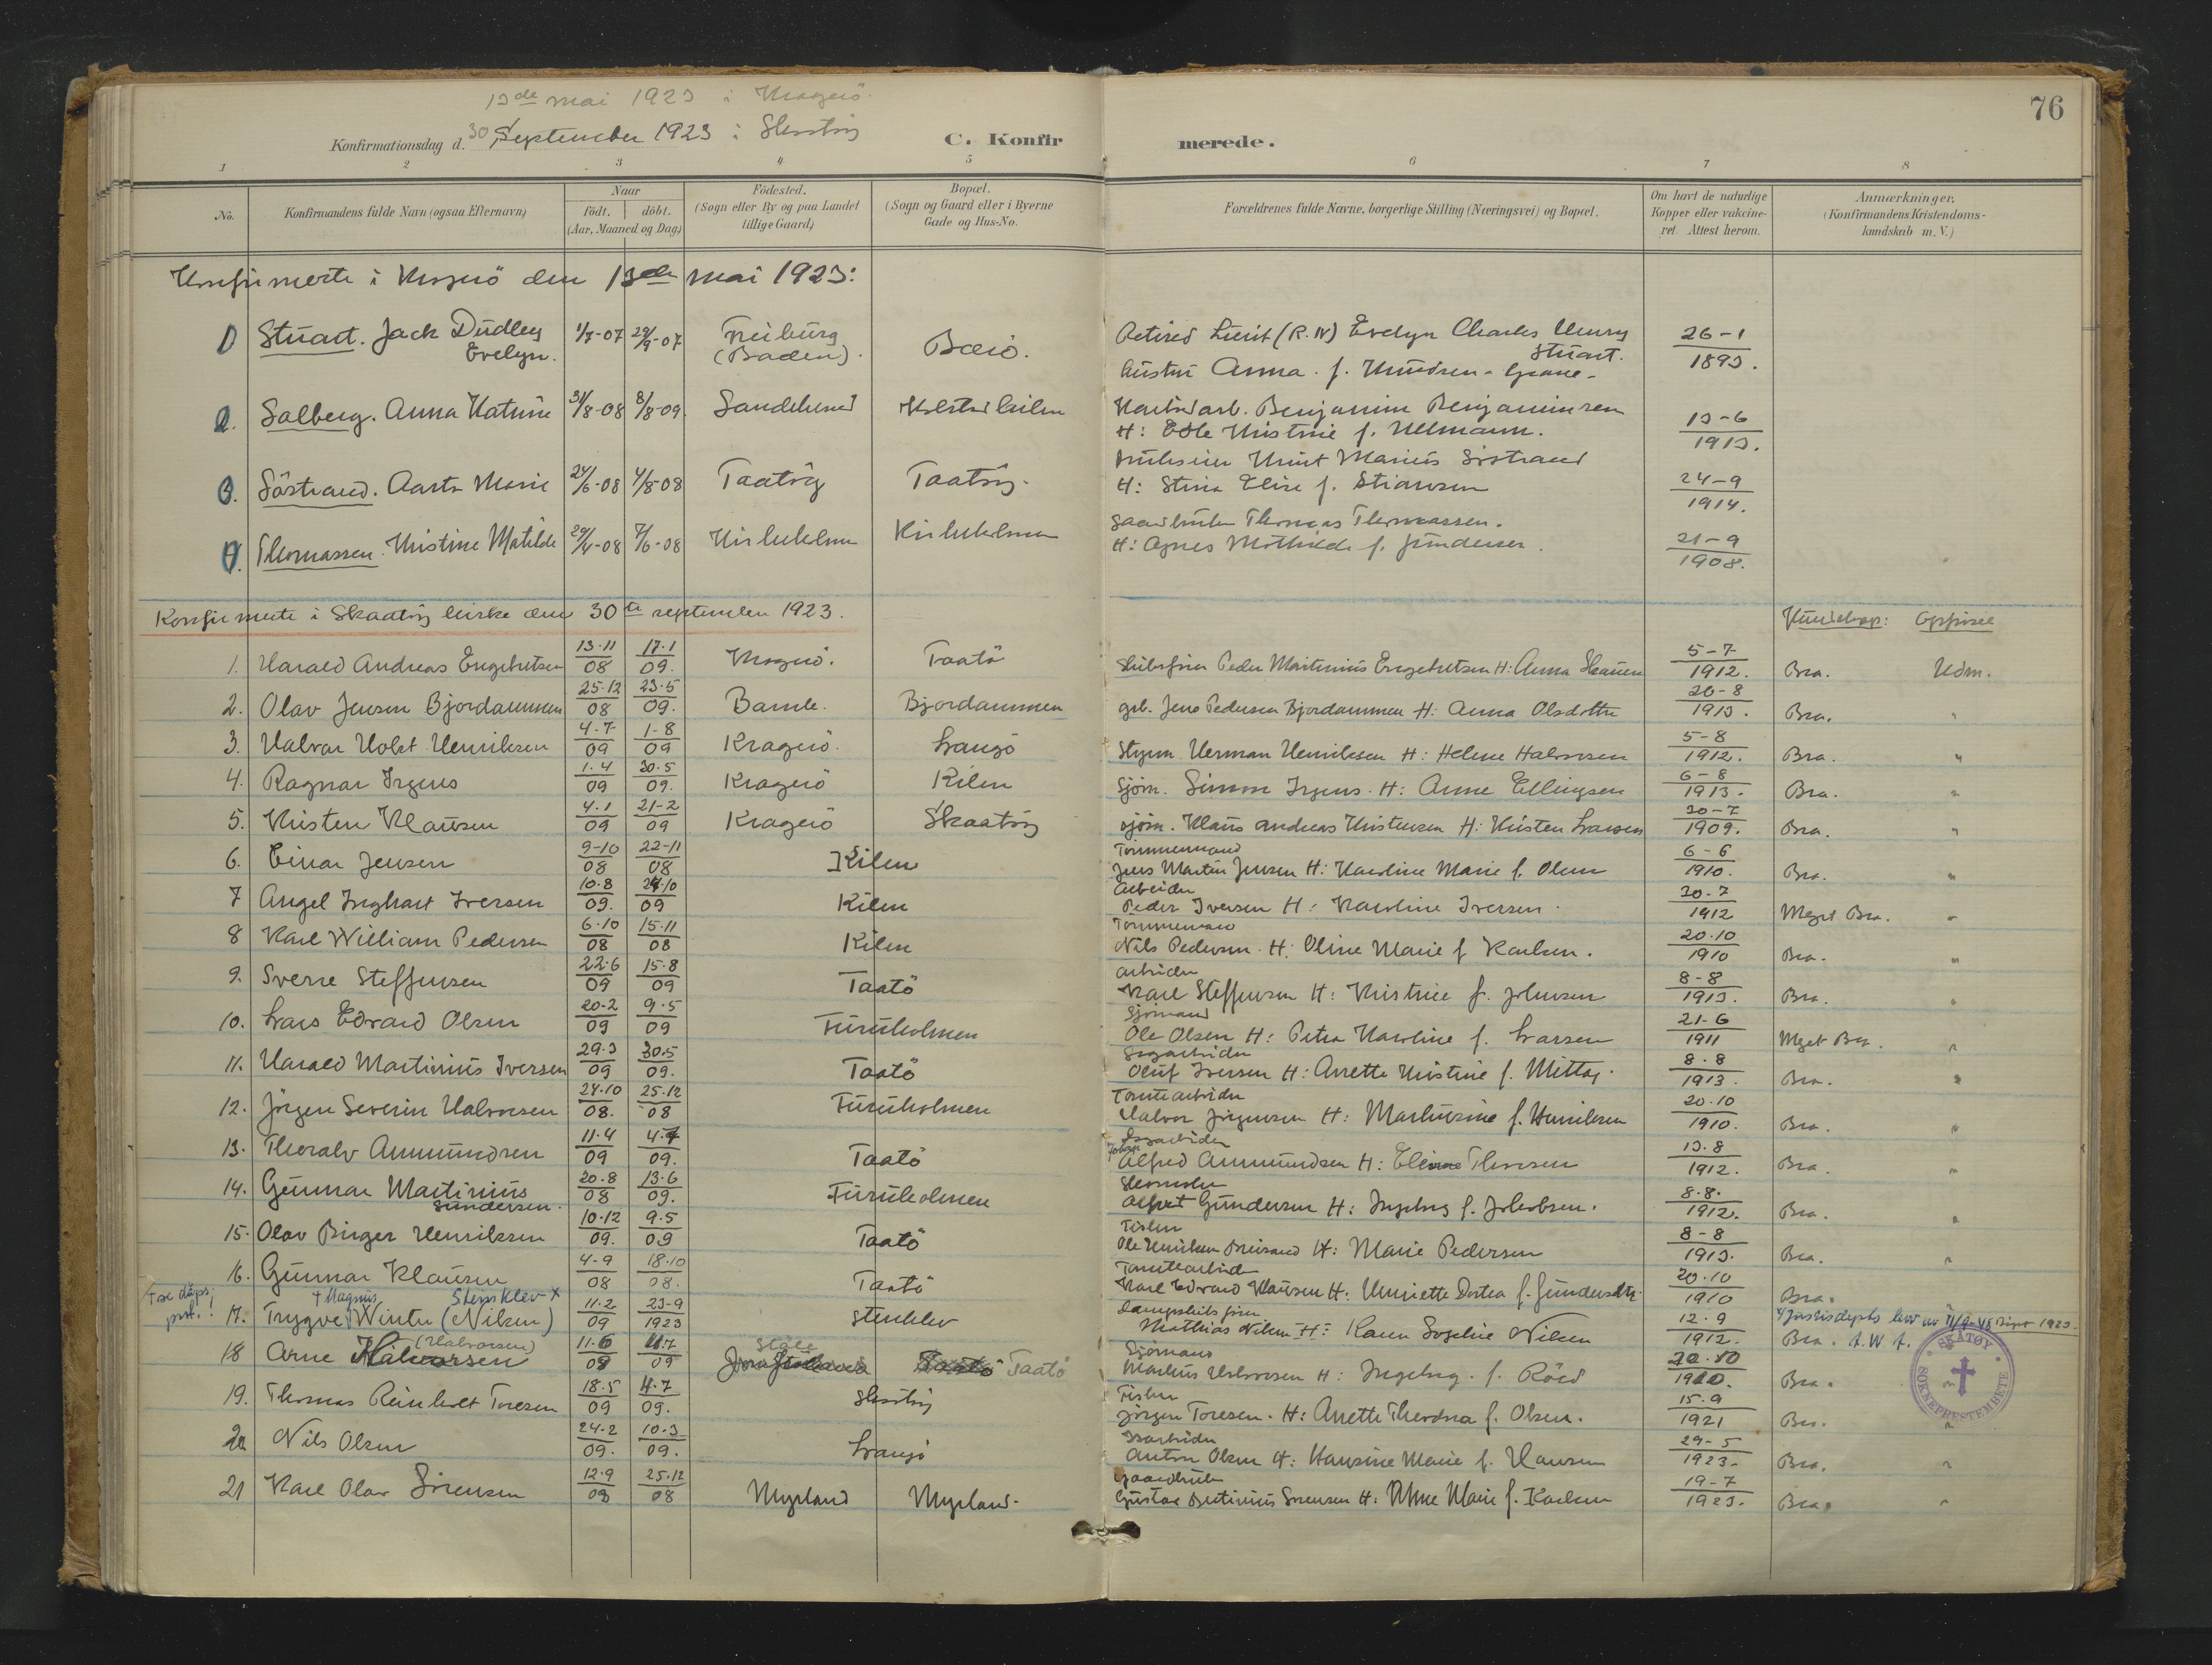 76
13de mai 1923 i Kragerö
Konfirmationsdag d. 30 September 1923 i Skaatöy
C. Konfirmerede.
1 2 3 4 5 6 7 8
No. Konfirmandens fulde Navn (ogsaa Efternavn) Naar födt. döbt. (Aar, Maaned og Dag) Födested. (Sogn eller By og paa Landet tillige Gaard) Bopæl. (Sogn og Gaard eller i Byerne Gade og Hus-No. Forældrenes fulde Navne, borgerlige Stilling (Næringsvei) og Bopæl. Om havt de naturlige Kopper eller vakcineret. Attest herom. Anmærkninger, (Konfirmandens Kristendomskundskab m. V.)
Konfirmerte i Kragerö den 13de mai 1923:
1 Stuart. Jack Dudley Evelyn. 1/7-07 29/9-07 Freiburg (Baden). Bærö. Retired Lieut (R.N) Evelyn Charles Henry Stuart. hustru Anna f. Knudsen 26-1 1893.
2. Salberg. Anna Katrine 31/8-08 8/8-09. Holster kilen Benjamin Benjaminsen H: Edle Kristine f. Ullmann. 13-6 1913.
3. Söstrand. Aasta Marie 24/6-08 4/8-08 Taatöy Taatöy. Knut Marius Söstrand H: Stina Elise f. Stiansen 24-9 1914.
4. Thomassen. Kristine Matilde 29/4-08 7/6-08 Kirkeholmen Kirkeholmen Gaardbruker Thomas Thomassen. H: Agnes Mathilde f. Gundersen. 21-9 1908.
Konfirmerte i Skaatöy kirke den 30te september 1923. Kundskap: Opförsel
1. Harald Andreas Engebretsen 13.11 08 17.1 09. Kragerö. Taatö Skibsförer Peder Martinius Engebretsen H: Anna Skauen 5-7 1912. Bra. Udm.
2. Olav Jensen Bjordammen 25.12 08 23.5 09. Bamle. Bjordammen grb. Jens Pedersen Bjordammen H: Anna Olsdotter 20-8 1913. Bra. "
3. Halvar Holst Henriksen 4-7 09 1-8 09 Kragerö. Langö Styrm. Herman Henriksen H: Helene Halvorsen 5-8 1912. Bra. "
4. Ragnar Irgens 1.4 09 30.5 09. Kragerö Kilen Sjöm. Simon Irgens. H: Anne Ellingsen 6-8 1913. Bra. "
5. Kristen Klausen 4.1 09 21-2 09 Kragerö Skaatöy sjöm. Klaus Andreas Kristensen H: Kristen Larsen 30-7 1909. Bra. "
6. Einar Jensen 9-10 08 22-11 08 Kilen Tömmermand Jens Martin Jensen H: Karoline Marie f. Olsen 6-6 1910. Bra. "
7 Angel Inghart Iversen 10.8 09. 24.10 09 Kilen Arbeider Peder Iversen H: Karoline Iversen. 30-7 1912 Meget Bra. "
8 Karl William Pedersen 6.10 08 15.11 08 Kilen Tömmermand Nils Pedersen. H: Oline Marie f Karlsen. 20.10 1910 Bra. "
9. Sverre Steffensen 22.6 09 15.8 09 Taatö arbeider Karl Steffensen H: Kristine f. Johnsen 8-8 1913. Bra. "
10. Lars Edvard Olsen 20-2 09 9.5 09 Furuholmen Sjömand Ole Olsen H: Petra Karoline f. Larsen 21-6 1911 Meget Bra. "
11. Harald Martinius Iversen 29.3 09 30.5 09. Taatö Isarbeider Oluf Iversen H: Anette Kristine f. Mittag. 8.8 1913. Bra. "
12. Jörgen Severin Halvorsen 24.10 08. 25.12 08 Furuholmen Tomtearbeider Halvor Jörgensen H: Marthisine f. Henriksen 20.10 1910. Bra. "
13. Theralv Ammundsen 11.4 09 4.7 09. Taatö Isarbeider Johan Alfred Ammundsen H: Eline Thoresen 13.8 1912. Bra. "
14. Gunnar Martinius Gundersen. 20.8 08 13.6 09. Furuholmen Alfred Gundersen H: Ingeborg f. Jakobsen. 8.8. 1912. Bra. "
15. Olav Birger Henriksen 10.12 09. 9.5 09 Taatö Fisker Ole Henriksen H: Marie Pedersen 8-8 1913. Bra. "
16. Gunnar Klausen 4-9 08 18.10 08. Taatö Tomtearbeid Karl Edvard Klausen H: Henriette Dortea f. Gundersdtr. 20.10 1910 Bra.
+ se dåps prt.! 17. Trygve + Magnus Winter (Nilsen) Stensklev x 11.2 09 23-9 1923 Stensklev Dampskibsförer Mathias Nilsen H: Karen Sogelie Nilsen 12.9 1912. Bra. A.W f.
18 Arne Halvorsen (Halvorsen) 11.6 09 11.7 09 Ståle Taatö Taatö Sjömand Markus Halvorsen H: Ingeborg. f. Röed 20.10 1910. Bra. "
19. Thomas Reinholt Toresen 18.5 09 4.7 09. Skaatöy Fisker Jörgen Toresen. H: Anette Theodora f. Olsen. 15.9 1921 Bra. "
20 Nils Olsen 24.2 09. 10.3 09. Langö Isarbeider Anton Olsen H: Hansine Marie f. Hansen 29-5 1923. Bra. "
21 Karl Olav Sörensen 12.9 08 25.12 08 Myrland Myrland. Gaardbruker Gustav Sörensen H: Anne Marie f. Karlsen 19-7 1923. Bra. "
SKÅTØY SOKNEPRESTEMBETE